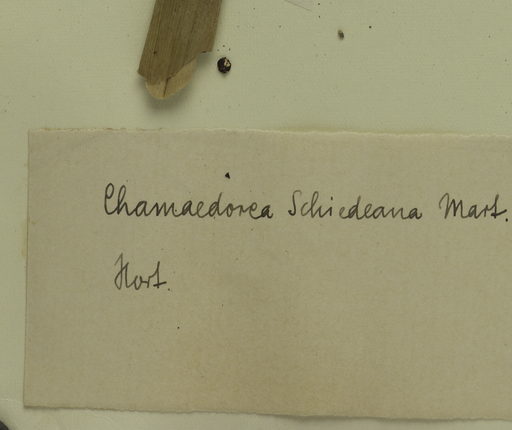 Chamaedorea Schiedeana Mart.
Hort.